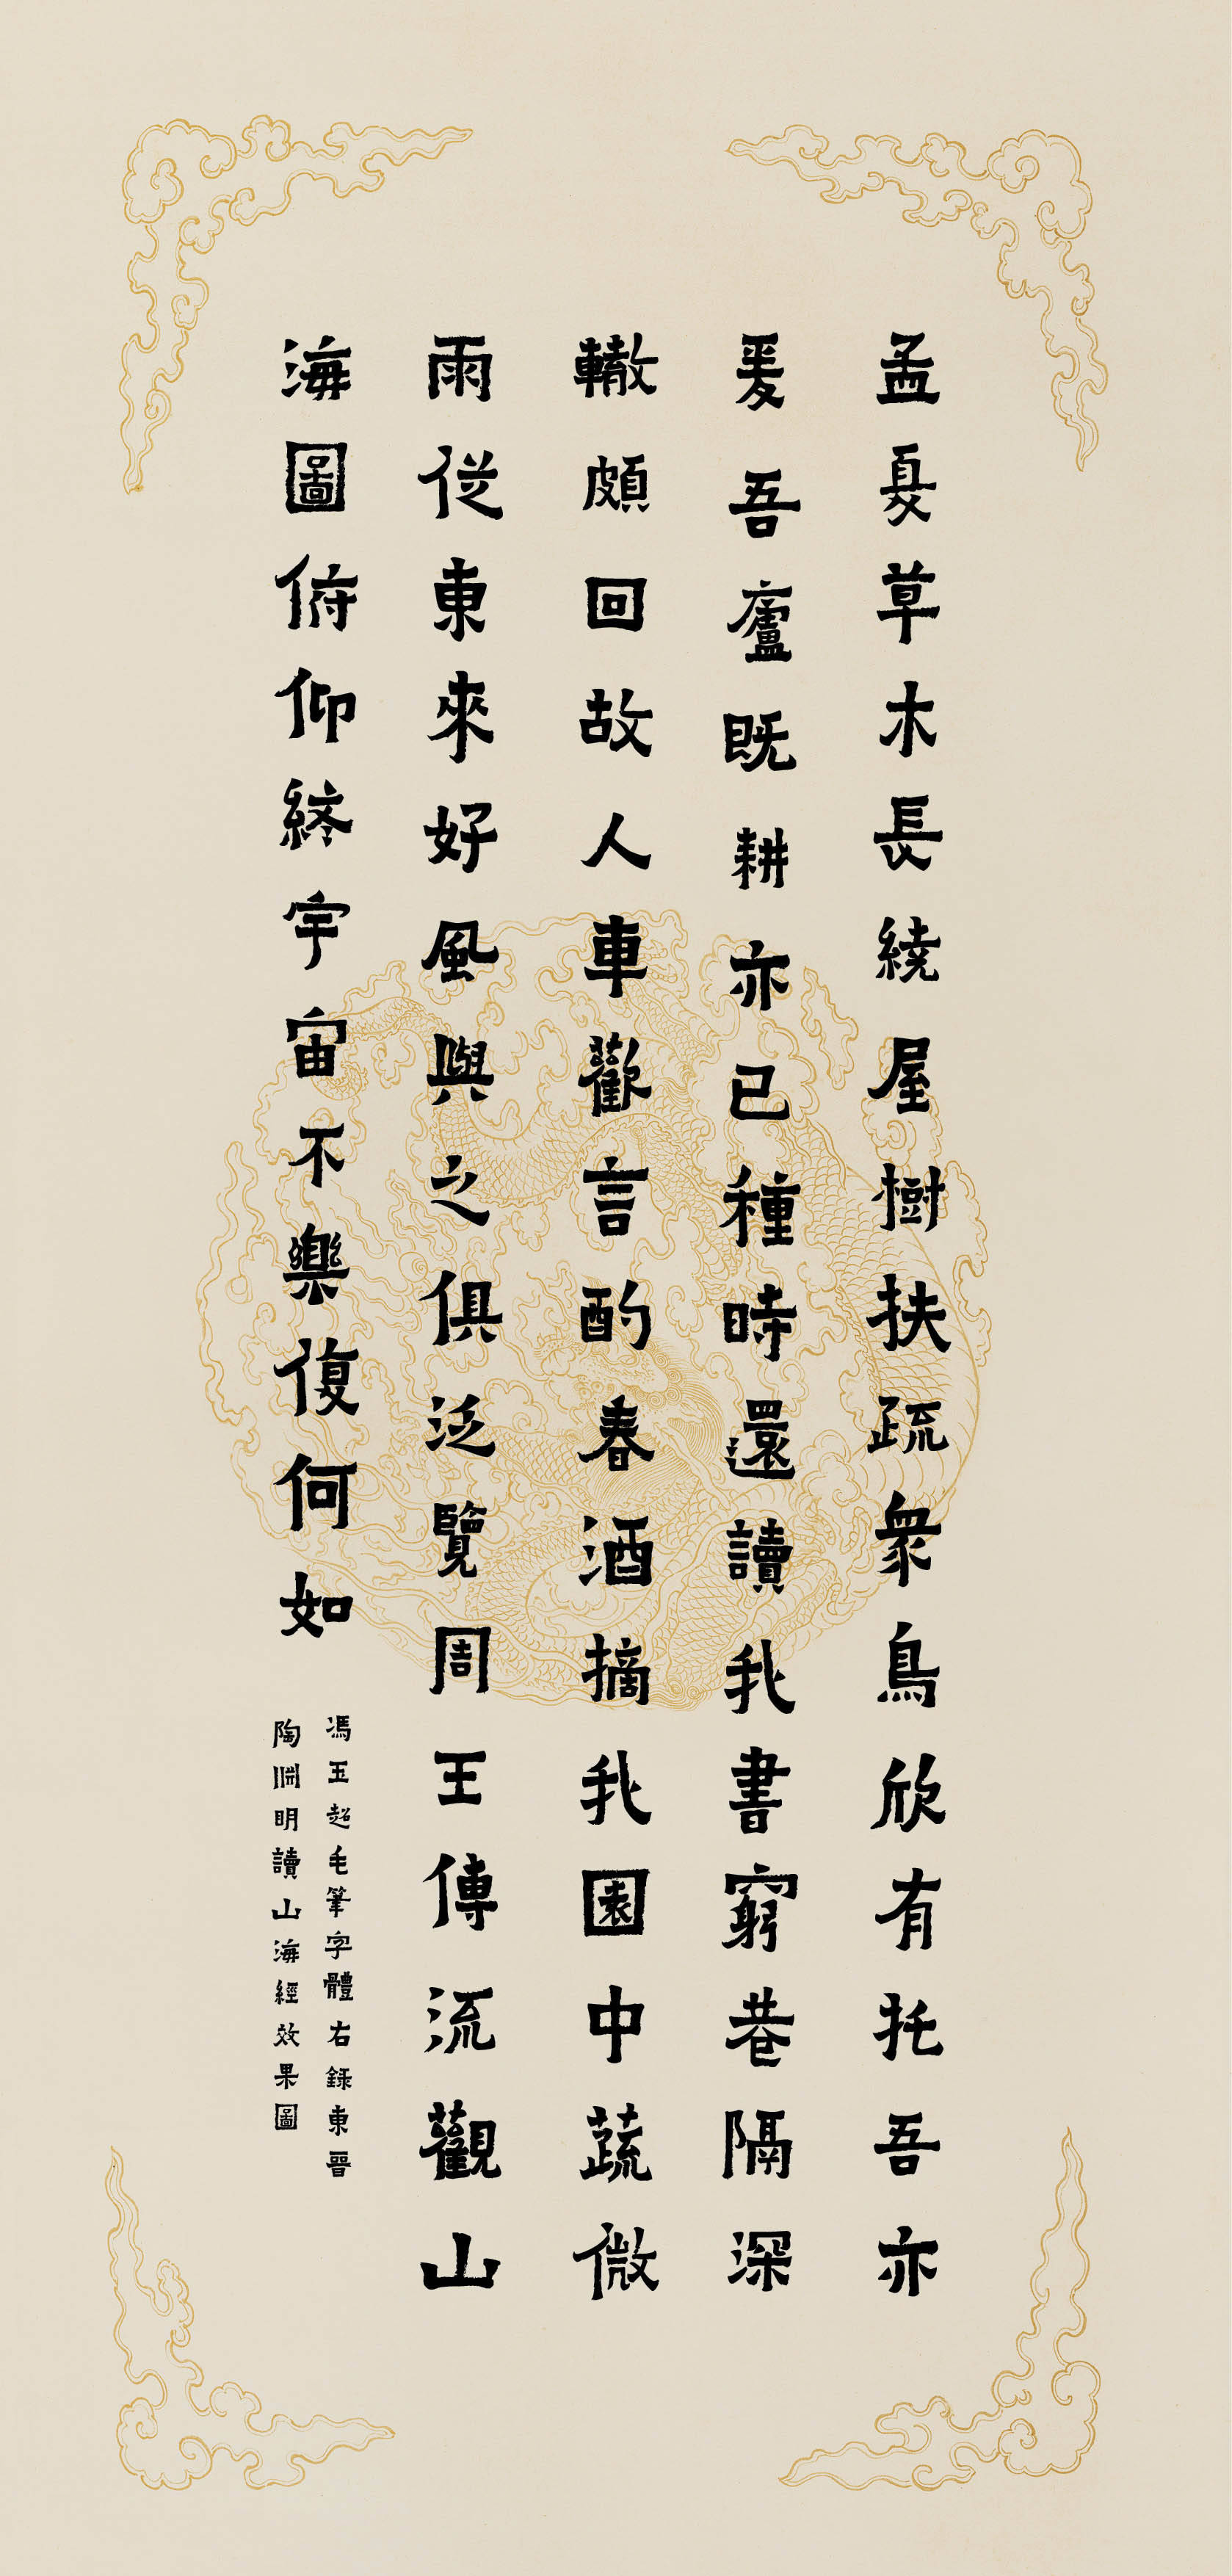 孟夏草木長繞屋樹扶疏衆鳥欣有托吾亦
爰吾廬既耕亦已種時還讀我書窮巷隔深
轍頗回故人車歡言酌春酒摘我園中蔬微
雨從東來好風與之俱泛覽周王傳流觀山
海圖俯仰終宇宙不樂復何如
馮玉超毛筆字體右錄東晉
陶淵明讀山海經效果圖